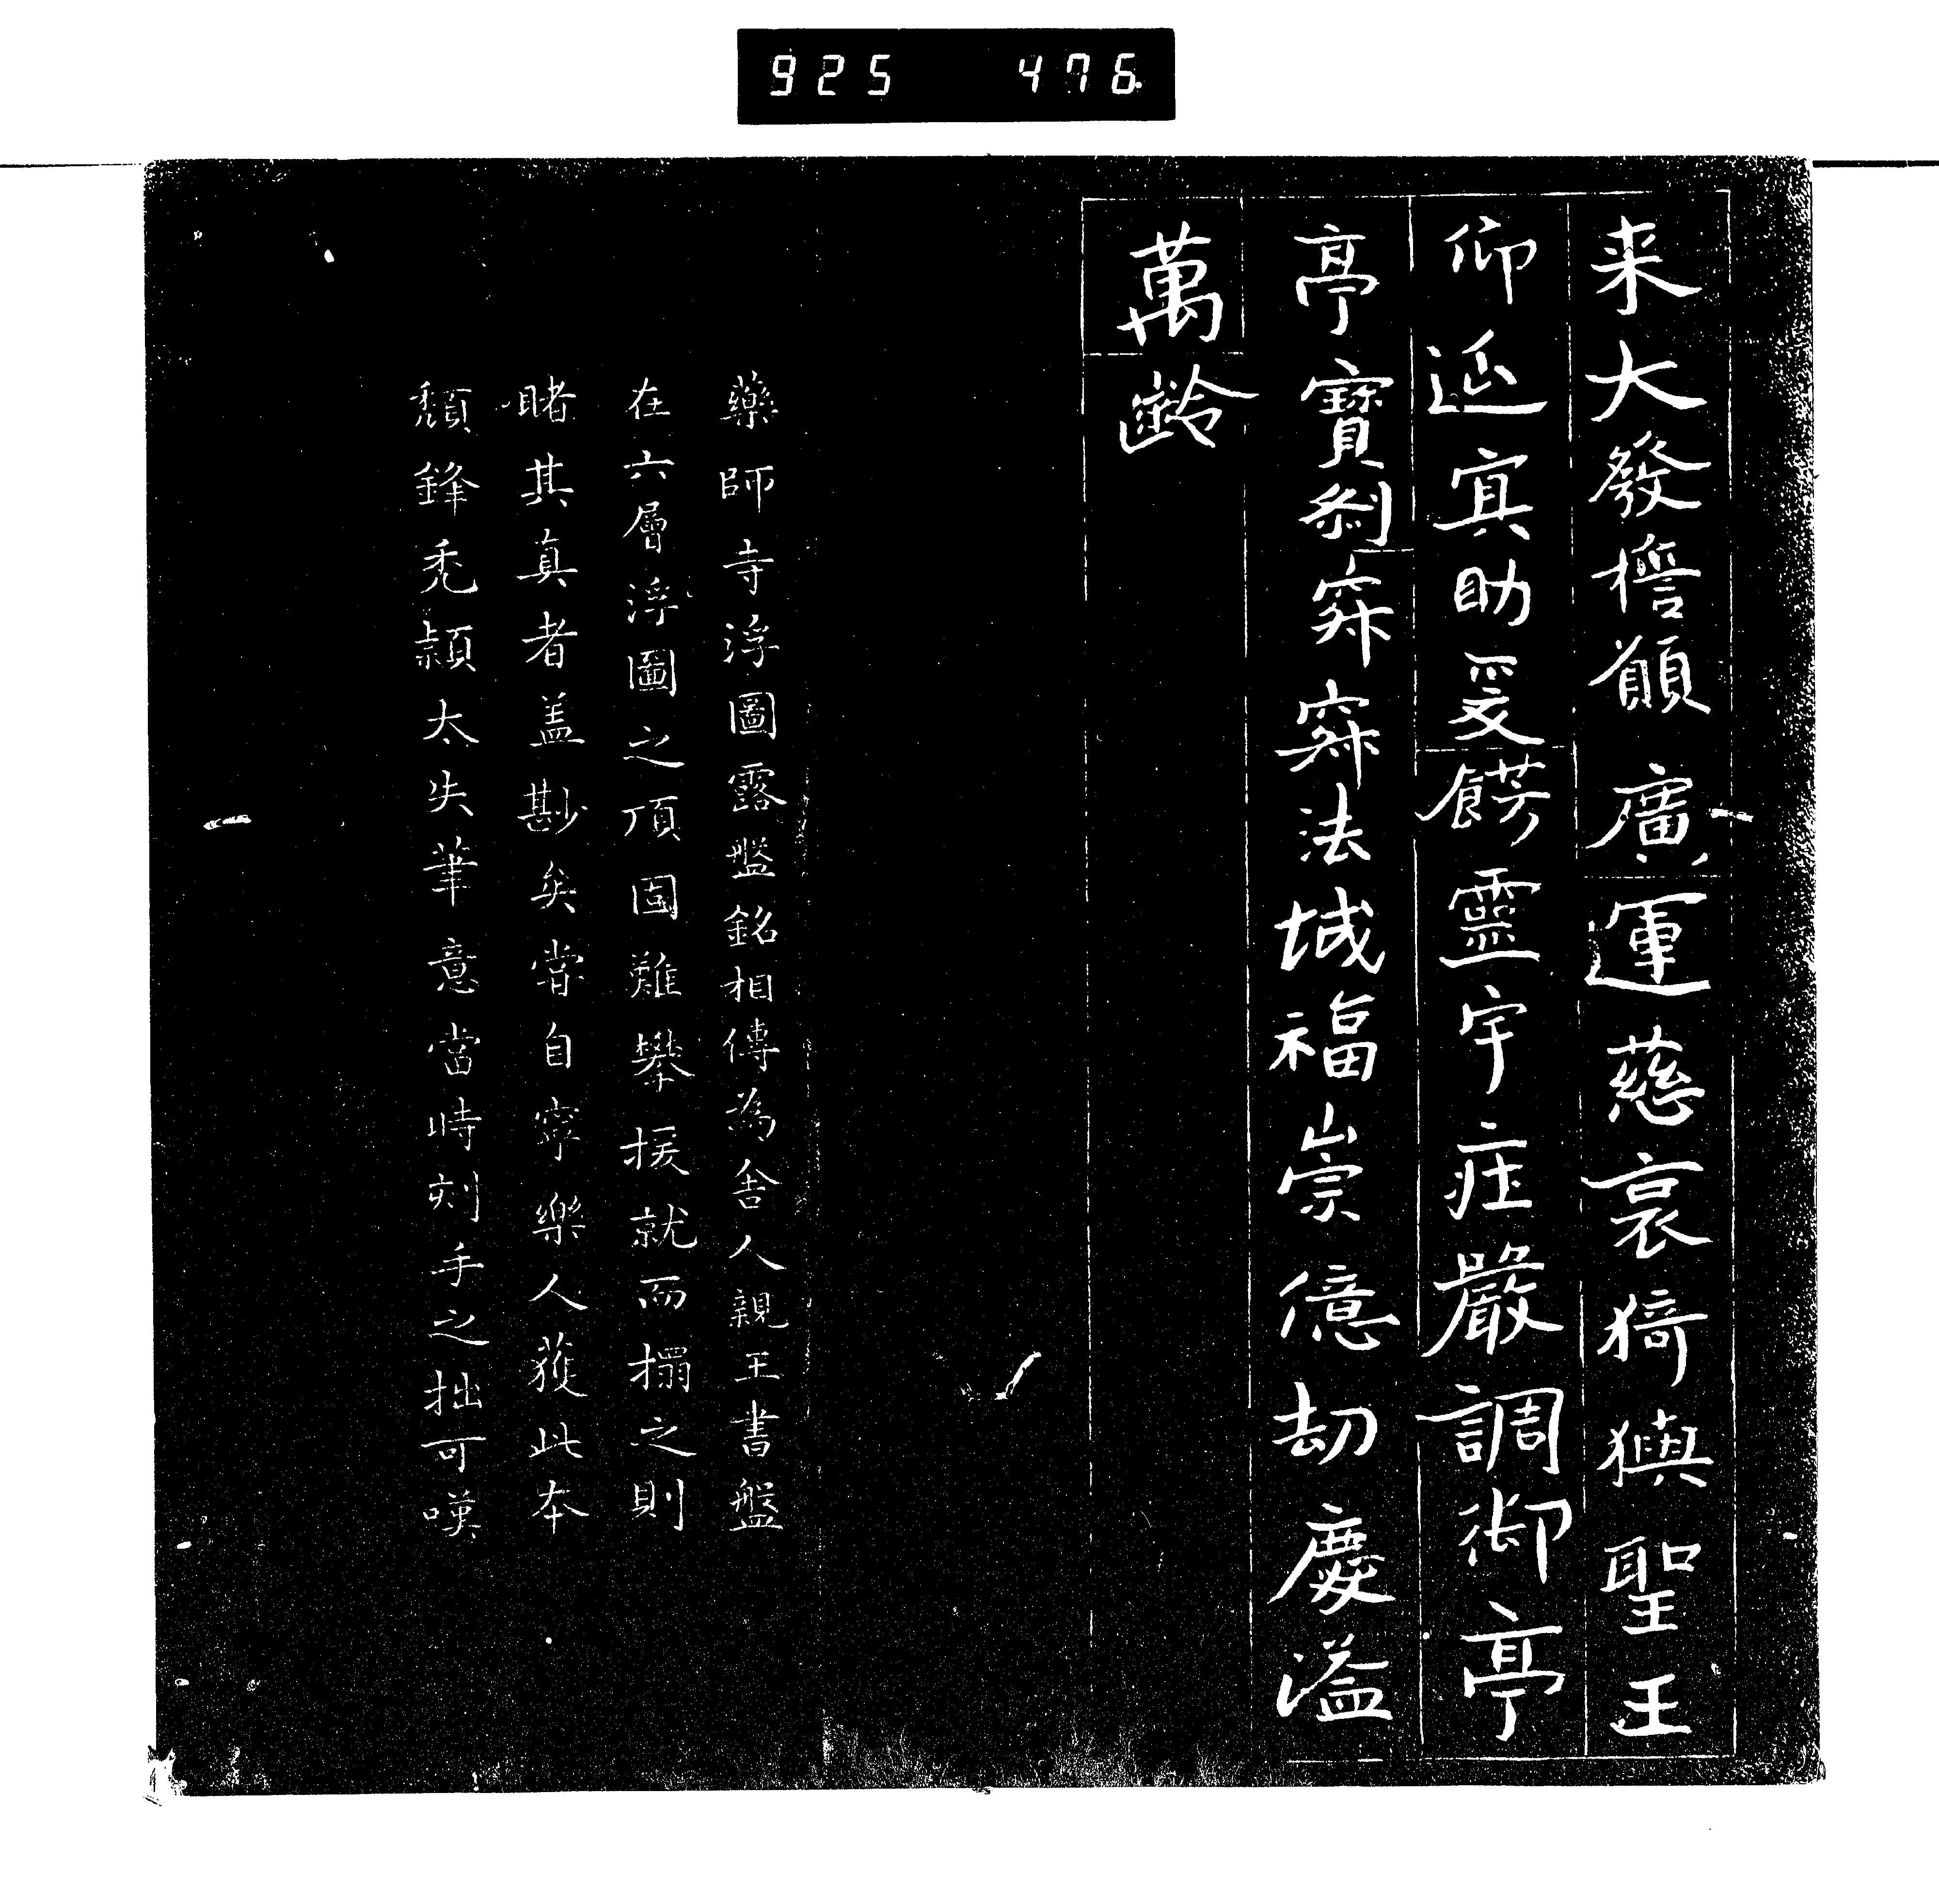 925 476
来大發擔願廣運慈哀猗㺞聖王
仰延寘助爰餝靈宇庄嚴調御亭
亭寶刹寀寀法城福崇億劫慶溢
萬齡
藥師寺浮圖露盤銘相傳為舍人親王書盤
在六層浮圖之頂固難攀援就而搨之則
睹其真者盖尠矣嘗自寧樂人獲此本
頽鋒禿穎太失筆意當時刻手之拙可嘆